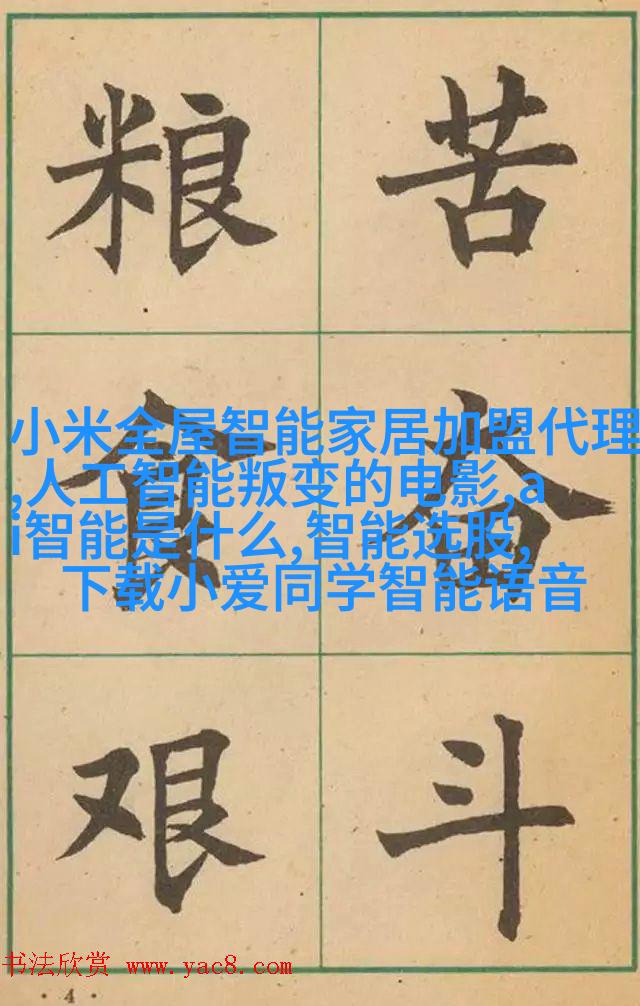 粮 苦
食 奋
艰 斗
小米全屋智能家居加盟代理
,人工智能叛变的电影,a
i智能是什么,智能选股,
下载小爱同学智能语音
书法欣赏 www.yac8.com
· 4 ·